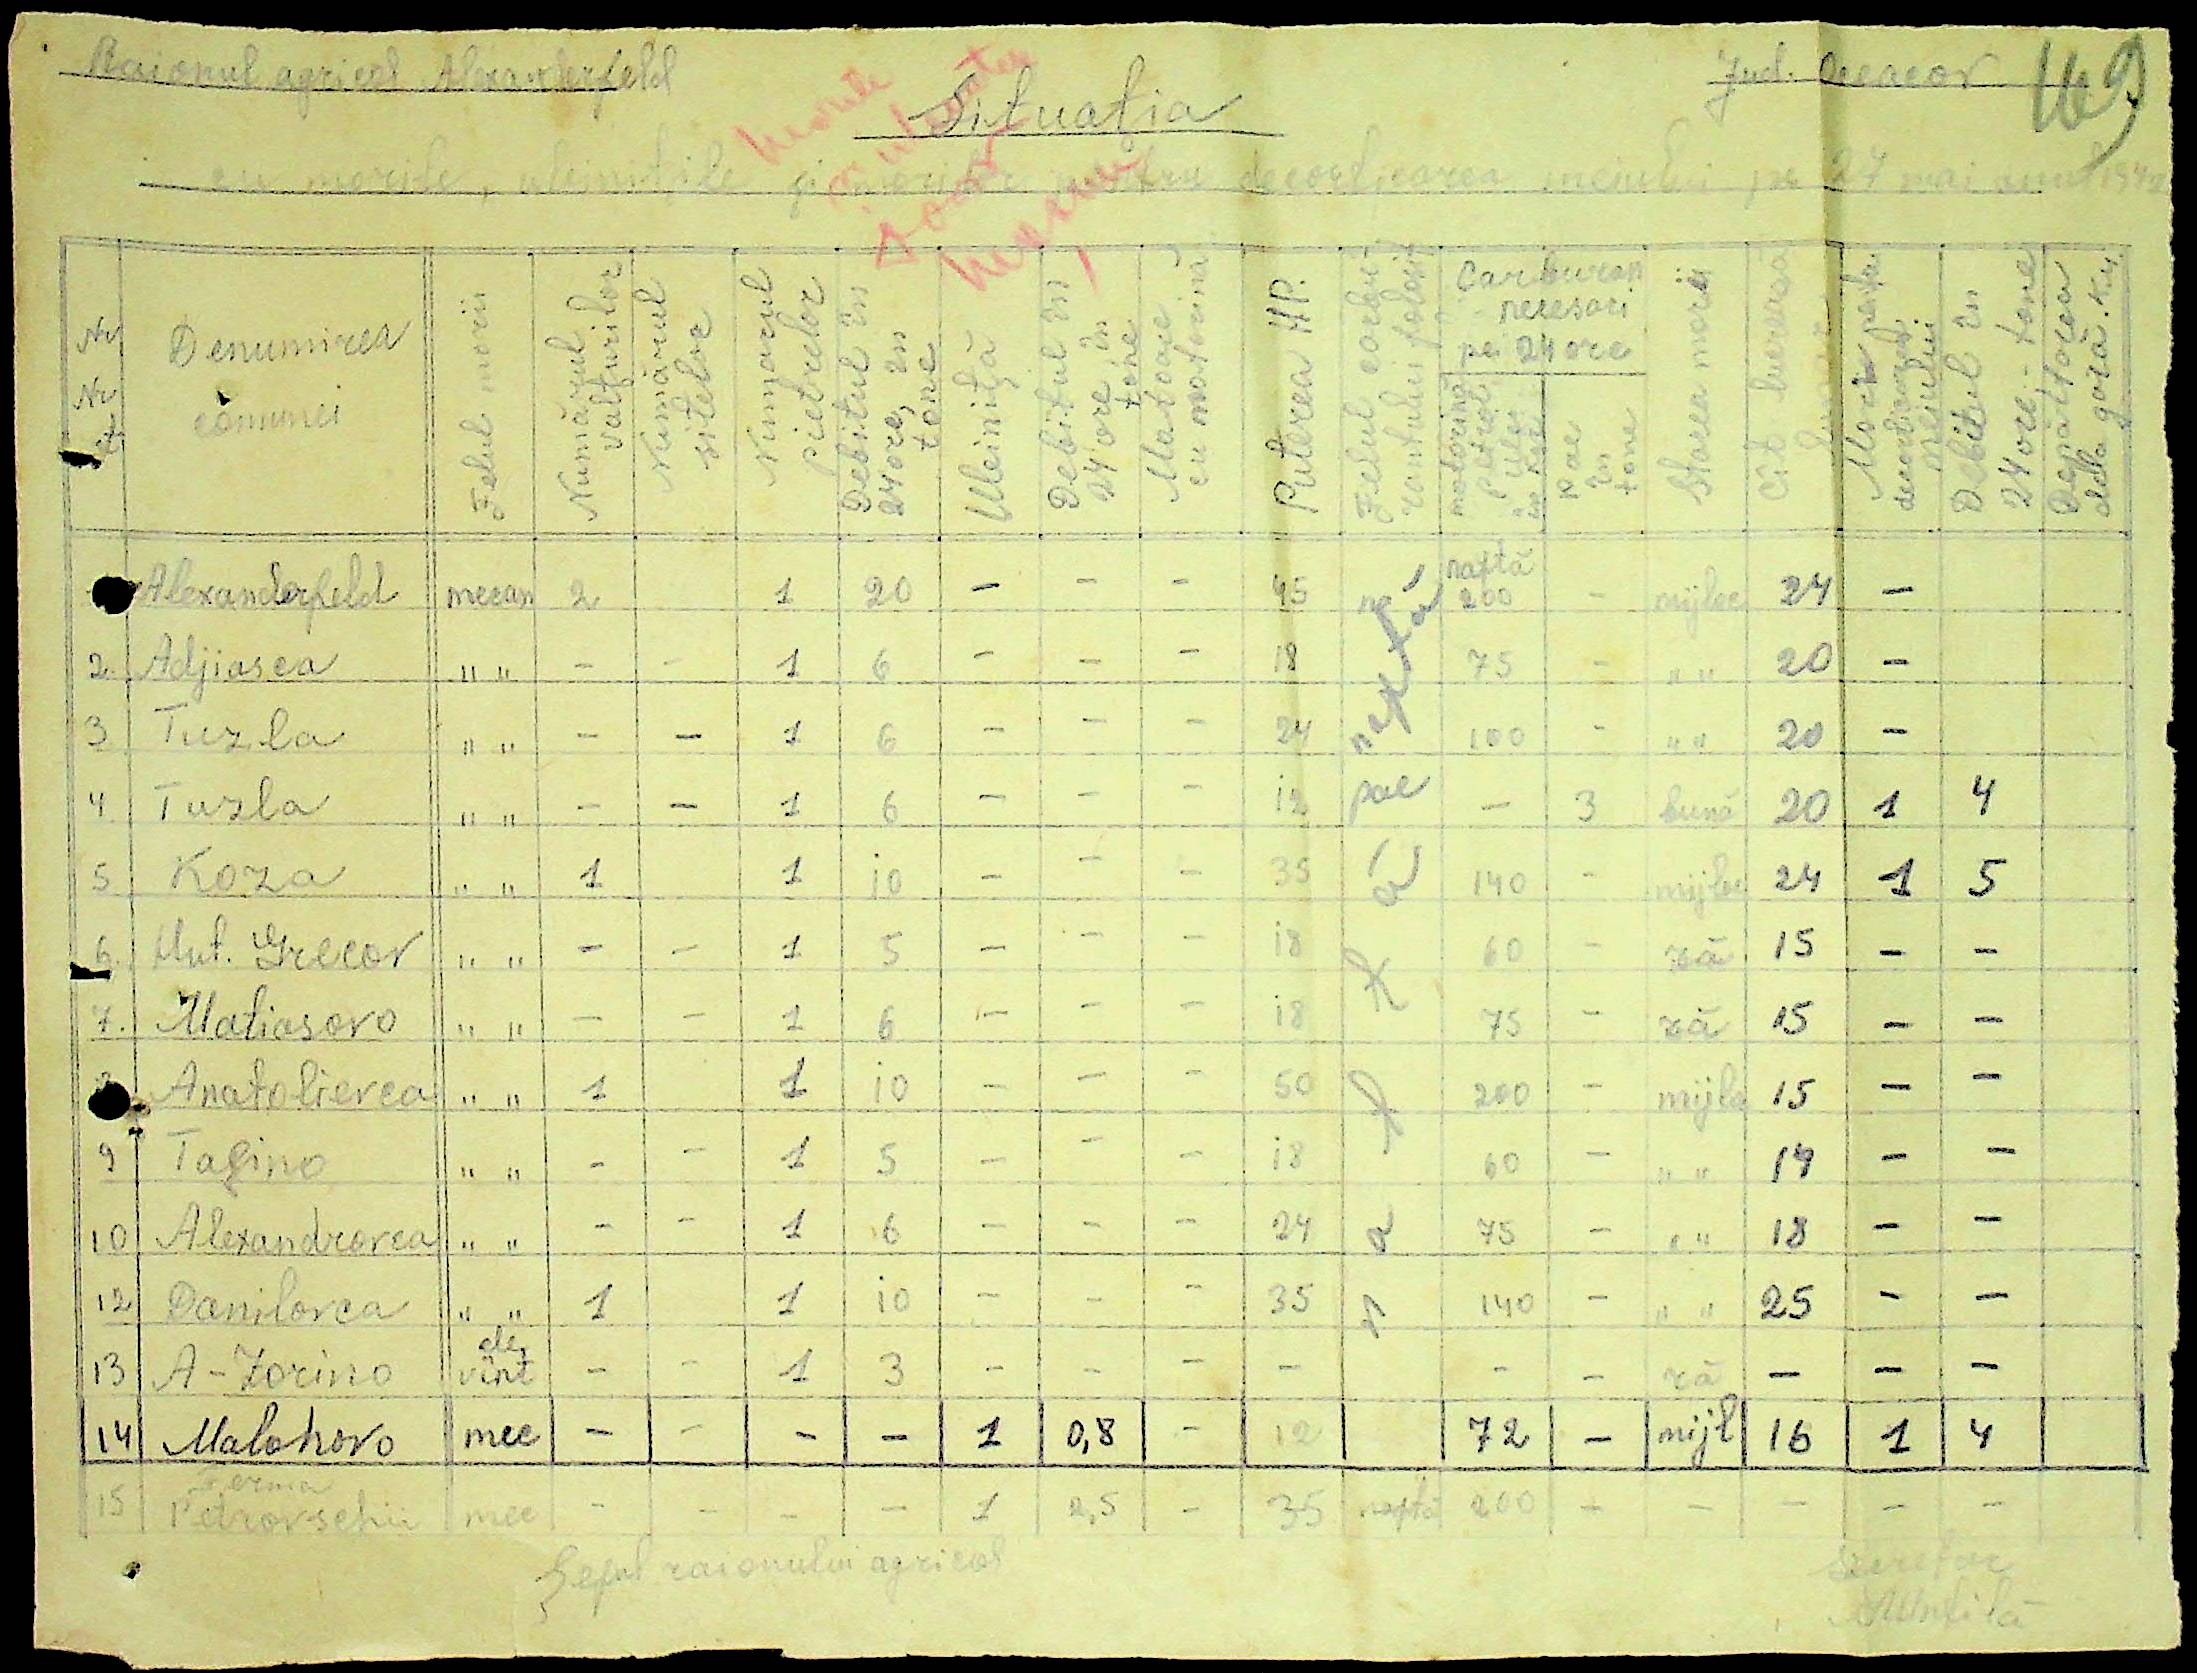 Raionul agricol Alexanderfeld
Jud. Oceacov
169
Situatia
cu morile, uleinițile și morile pentru decorticarea meiului pe 27 mai anul 1942
morile
Nr Nr
Denumirea comunei
Felul morii
Numărul valțurilor
Numărul sitelor
Numărul pietrelor
Debitul în 24 ore, în tone
Uleiniță
Debitul în 24 ore în tone
Motoare cu motorină
Puterea HP.
Felul carburantului folosit
Carburan neresari pe 24 ore
motorină petrol în kgr
Pae în tone
Starea morii
Cît lucrează
Moriă pentru decorticarea meiului
Debitul în 24 ore - tone
Depărtarea dela gară. Km.
Alexanderfeld mecan 2 1 20 - - - 45 naftă 200 - mijloc 24 -
2. Adjiasca " " - - 1 6 - - - 18 75 - " " 20 -
3 Tuzla " " - - 1 6 - - - 24 naftă 100 - " " 20 -
4 Tuzla " " - - 1 6 - - - 12 pae - 3 bună 20 1 4
5 Koza " " 1 1 10 - - - 35 140 - mijloc 24 1 5
6. Hut. Grecov " " - - 1 5 - - - 18 60 - ră 15 - -
7. Matiasovo " " - - 1 6 - - - 18 75 - ră 15 - -
Anatolievca " " 1 1 10 - - - 50 200 - mijlo 15 - -
9 Tașino " " - - 1 5 - - 18 60 - " " 14 - -
10 Alexandrovca " " - - 1 6 - - - 24 75 - " " 18 - -
12 Danilovca " " 1 1 10 - - - 35 140 - " " 25 - -
13 A-Zorino de vînt - - 1 3 - - - - - - ră - - -
naftă
14 Malohovo mec - - - - 1 0,8 - 12 72 - mijl 16 1 4
15 Ferma Petrovschii mec - - - - 1 2,5 - 35 naftă 200 - - - - -
Șeful raionului agricol
Secretar